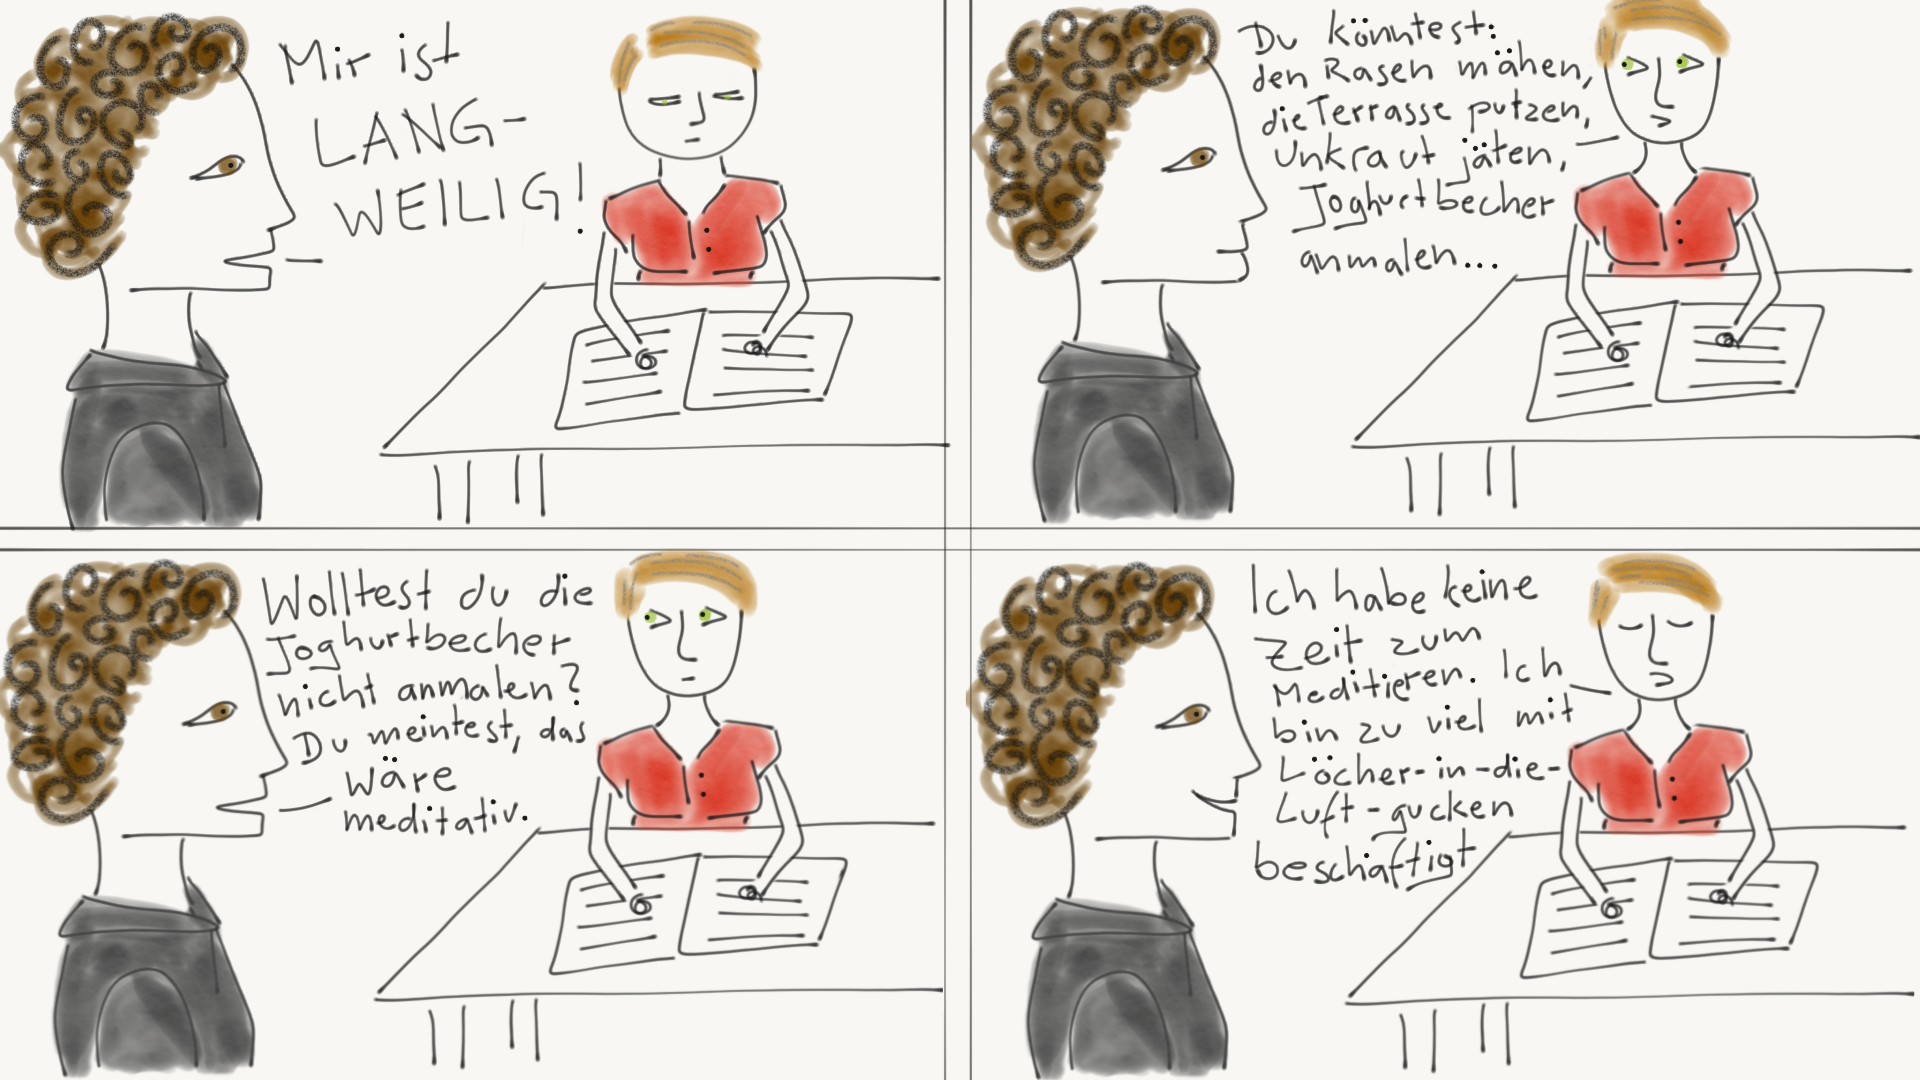 Mir ist
LANG-
WEILIG!
Du könntest:
den Rasen mähen,
die Terrasse putzen,
Unkraut jäten,
Joghurtbecher
anmalen...
Wolltest du die
Joghurtbecher
nicht anmalen?
Du meintest, das
wäre
meditativ.
Ich habe keine
Zeit zum
Meditieren. Ich
bin zu viel mit
Löcher-in-die-
Luft-gucken
beschäftigt